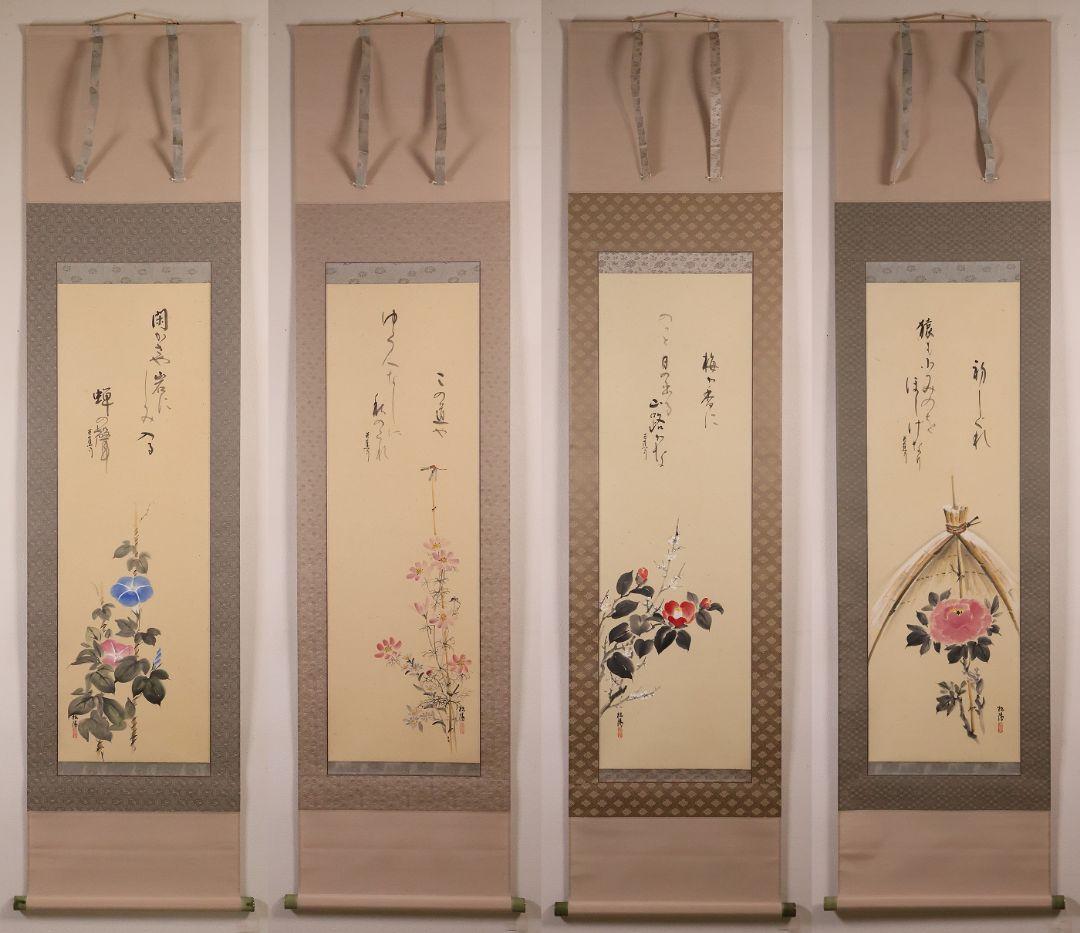 閑かさや岩に
しみ入る
蝉の聲
この道や
ゆく人なしに
秋のくれ
梅が香に
のっと日の出る
山路かな
初しぐれ
猿も小みのを
ほしげなり